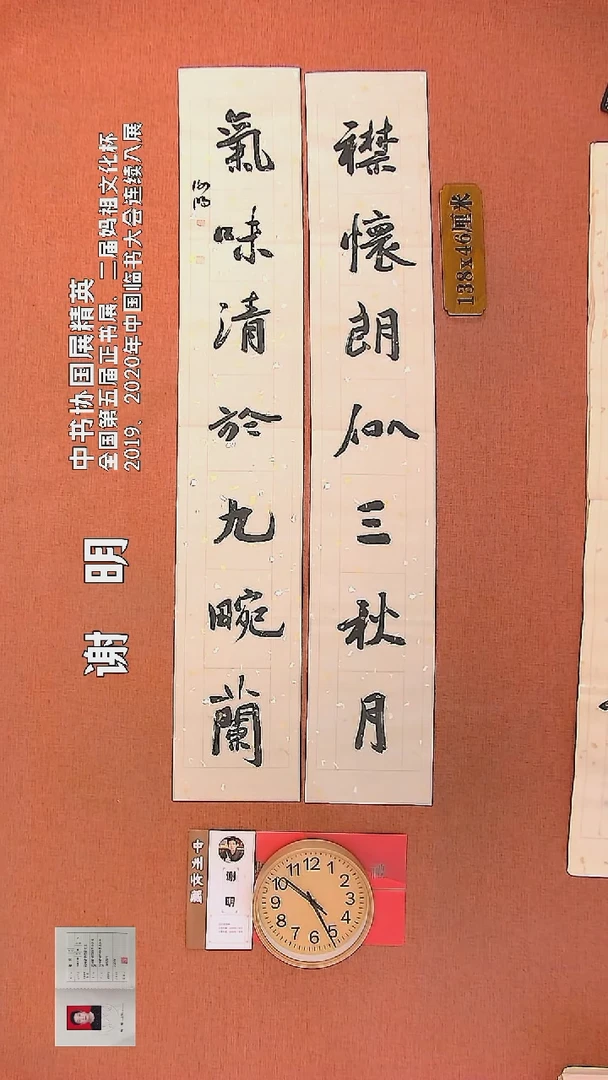 襟懷朗似三秋月
氣味清於九畹蘭
138x46厘米
谢 明
中书协国展精英
全国第五届正书展、二届妈祖文化杯
2019、2020年中国临书大会连续入展
12
1
2
3
4
5
6
7
8
9
10
11